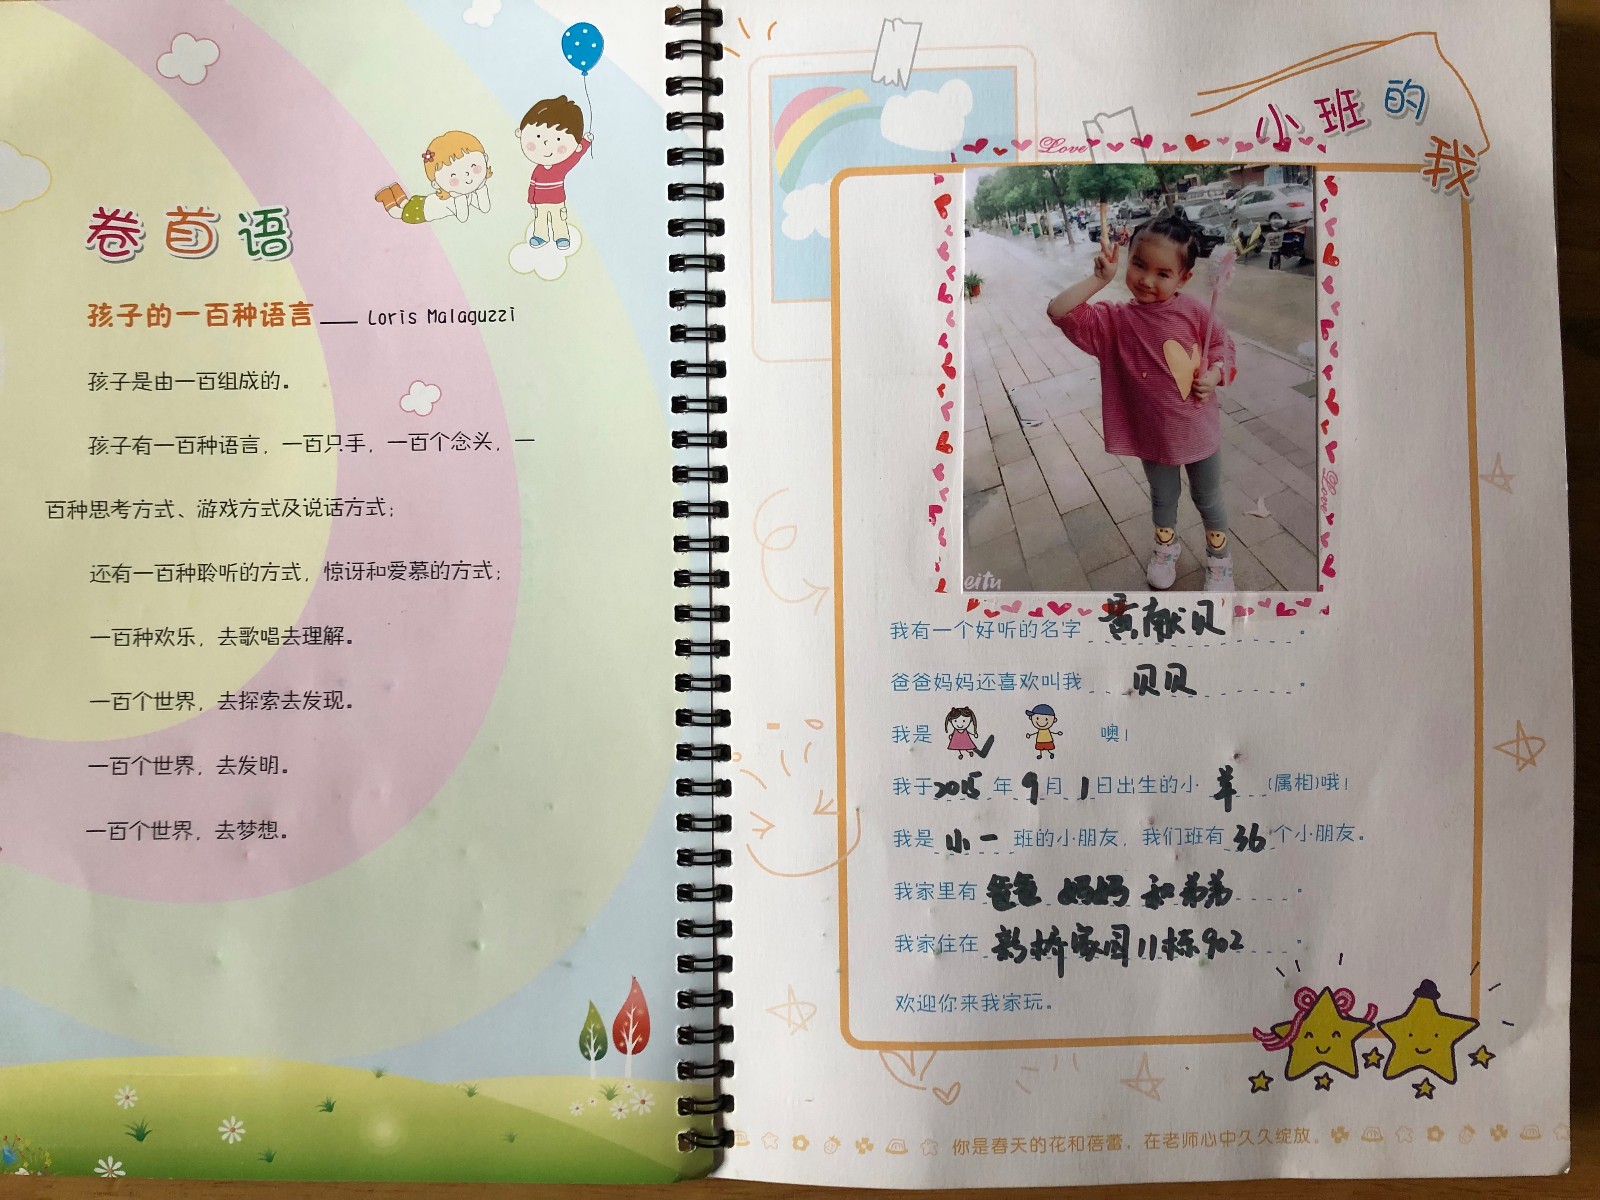 卷首语
孩子的一百种语言 —— Loris Malaguzzi
孩子是由一百组成的。
孩子有一百种语言，一百只手，一百个念头，一
百种思考方式、游戏方式及说话方式；
还有一百种聆听的方式，惊讶和爱慕的方式；
一百种欢乐，去歌唱去理解。
一百个世界，去探索去发现。
一百个世界，去发明。
一百个世界，去梦想。
小班的我
Love
Love
eitu
我有一个好听的名字 黄献贝 。
爸爸妈妈还喜欢叫我 贝贝 。
我是 噢！
我于2015年9月1日出生的小羊(属相)哦！
我是小一班的小朋友，我们班有36个小朋友。
我家里有爸爸 妈妈 和弟弟 。
我家住在 新桥家园11栋902 。
欢迎你来我家玩。
你是春天的花和蓓蕾，在老师心中久久绽放。